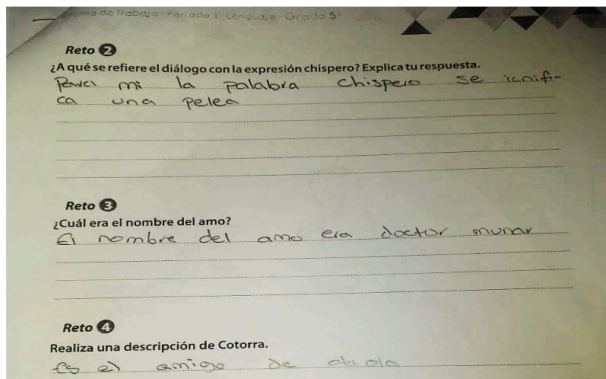 de trabajo - Periodo 1: Lenguaje - Grado 5°
Reto 2
¿A qué se refiere el diálogo con la expresión chispero? Explica tu respuesta.
Para mi la palabra chispero se icnifi-
ca una pelea
Reto 3
¿Cuál era el nombre del amo?
El nombre del amo era doctor munar
Reto 4
Realiza una descripción de Cotorra.
Es el amigo de